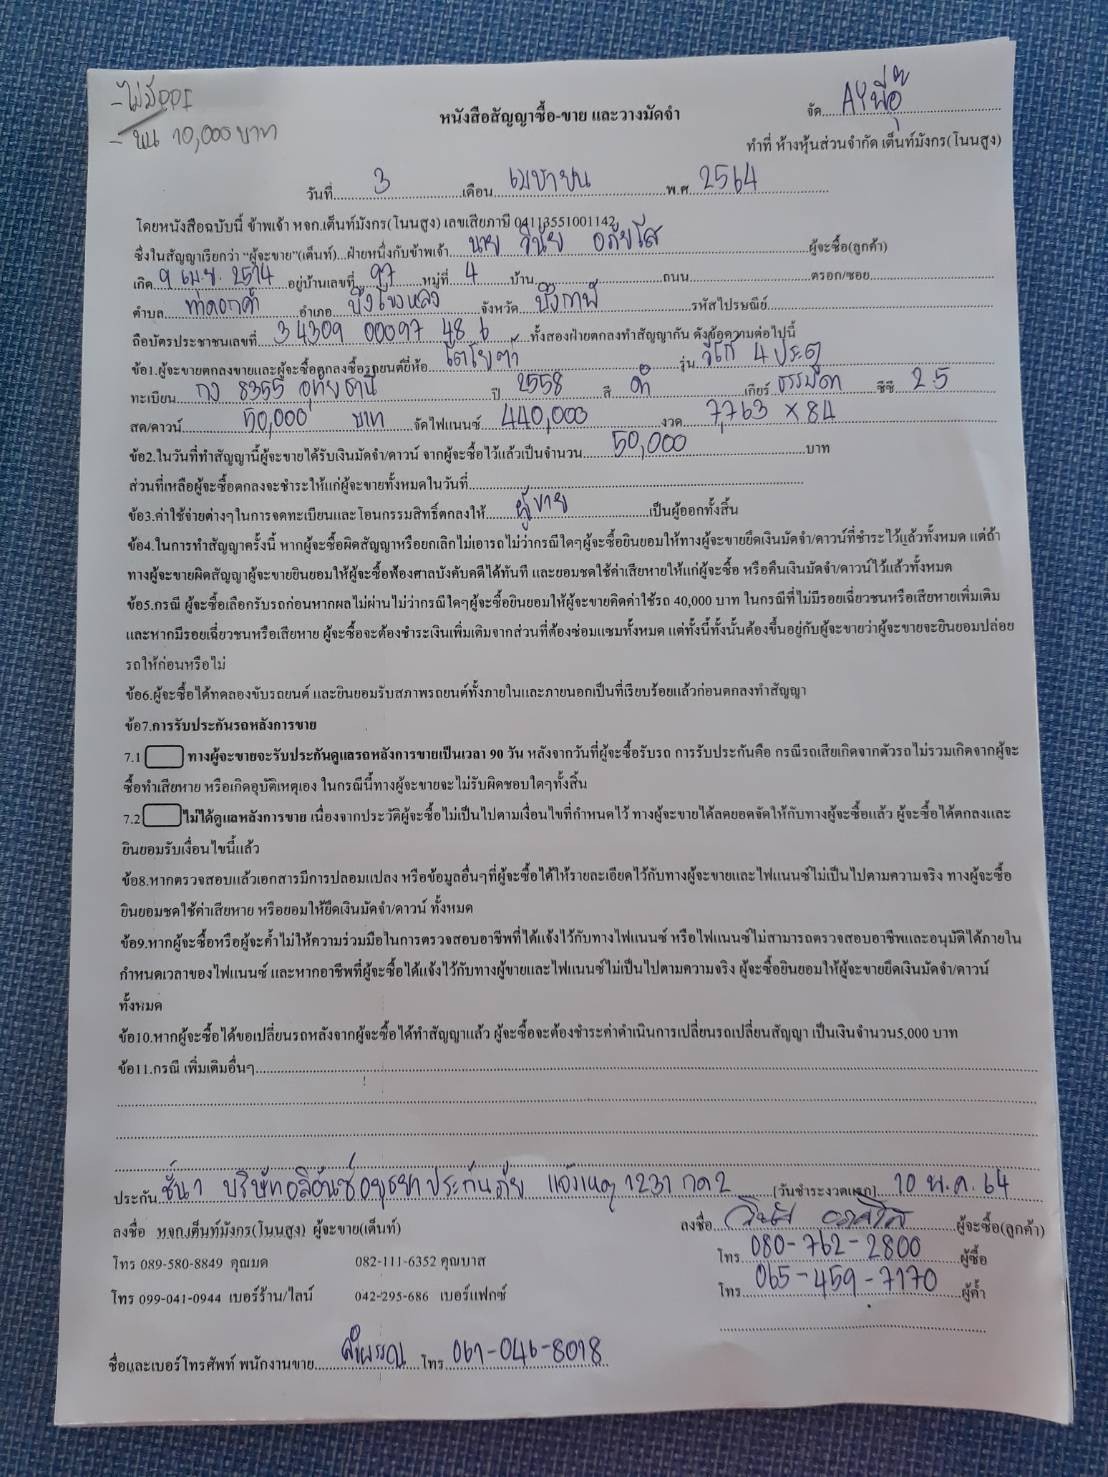 -ไม่มีPPI
- หนี้ 10,000 บาท
หนังสือสัญญาซื้อ-ขาย และวางมัดจำ
จัด...AYพี่อู๋
ทำที่ ห้างหุ้นส่วนจำกัด เต็นท์มังกร(โนนสูง)
วันที่ 3 เดือน เมษายน พ.ศ. 2564
โดยหนังสือฉบับนี้ ข้าพเจ้า หจก.เต็นท์มังกร(โนนสูง) เลขเสียภาษี 04113551001142
ซึ่งในสัญญาเรียกว่า "ผู้จะขาย"(เต็นท์)...ฝ่ายหนึ่งกับข้าพเจ้า นาย วินัย อภัยโส ผู้จะซื้อ(ลูกค้า)
เกิด 9 เมษ. 2514 อยู่บ้านเลขที่ 97 หมู่ที่ 4 บ้าน ถนน ตรอก/ซอย
ตำบล ท่าดอกคำ อำเภอ บึงโขงหลง จังหวัด บึงกาฬ รหัสไปรษณีย์
ถือบัตรประชาชนเลขที่ 3 4309 00097 48 6 ทั้งสองฝ่ายตกลงทำสัญญากัน ดังข้อความต่อไปนี้
ข้อ1.ผู้จะขายตกลงขายและผู้จะซื้อตกลงซื้อรถยนต์ยี่ห้อ โตโยต้า รุ่น วีโก้ 4 ประตู
ทะเบียน กง 8355 อุทัยธานี ปี 2558 สี ดำ เกียร์ ธรรมดา ซีซี 2.5
สด/ดาวน์ 50,000 บาท จัดไฟแนนซ์ 440,000 งวด 7,763 x 84
ข้อ2.ในวันที่ทำสัญญานี้ผู้จะขายได้รับเงินมัดจำ/ดาวน์ จากผู้จะซื้อไว้แล้วเป็นจำนวน 50,000 บาท
ส่วนที่เหลือผู้จะซื้อตกลงจะชำระให้แก่ผู้จะขายทั้งหมดในวันที่
ข้อ3.ค่าใช้จ่ายต่างๆในการจดทะเบียนและโอนกรรมสิทธิ์ตกลงให้ ผู้ขาย เป็นผู้ออกทั้งสิ้น
ข้อ4.ในการทำสัญญาครั้งนี้ หากผู้จะซื้อผิดสัญญาหรือยกเลิกไม่เอารถไม่ว่ากรณีใดๆผู้จะซื้อยินยอมให้ทางผู้จะขายยึดเงินมัดจำ/ดาวน์ที่ชำระไว้แล้วทั้งหมด แต่ถ้า
ทางผู้จะขายผิดสัญญาผู้จะขายยินยอมให้ผู้จะซื้อฟ้องศาลบังคับคดีได้ทันที และยอมชดใช้ค่าเสียหายให้แก่ผู้จะซื้อ หรือคืนเงินมัดจำ/ดาวน์ไว้แล้วทั้งหมด
ข้อ5.กรณี ผู้จะซื้อเลือกรับรถก่อนหากผลไม่ผ่านไม่ว่ากรณีใดๆผู้จะซื้อยินยอมให้ผู้จะขายคิดค่าใช้รถ 40,000 บาท ในกรณีที่ไม่มีรอยเฉี่ยวชนหรือเสียหายเพิ่มเติม
และหากมีรอยเฉี่ยวชนหรือเสียหาย ผู้จะซื้อจะต้องชำระเงินเพิ่มเติมจากส่วนที่ต้องซ่อมแซมทั้งหมด แต่ทั้งนี้ทั้งนั้นต้องขึ้นอยู่กับผู้จะขายว่าผู้จะขายจะยินยอมปล่อย
รถให้ก่อนหรือไม่
ข้อ6.ผู้จะซื้อได้ทดลองขับรถยนต์ และยินยอมรับสภาพรถยนต์ทั้งภายในและภายนอกเป็นที่เรียบร้อยแล้วก่อนตกลงทำสัญญา
ข้อ7.การรับประกันรถหลังการขาย
7.1 ทางผู้จะขายจะรับประกันดูแลรถหลังการขายเป็นเวลา 90 วัน หลังจากวันที่ผู้จะซื้อรับรถ การรับประกันคือ กรณีรถเสียเกิดจากตัวรถไม่รวมเกิดจากผู้จะ
ซื้อทำเสียหาย หรือเกิดอุบัติเหตุเอง ในกรณีนี้ทางผู้จะขายจะไม่รับผิดชอบใดๆทั้งสิ้น
7.2 ไม่ได้ดูแลหลังการขาย เนื่องจากประวัติผู้จะซื้อไม่เป็นไปตามเงื่อนไขที่กำหนดไว้ ทางผู้จะขายได้ลดยอดจัดให้กับทางผู้จะซื้อแล้ว ผู้จะซื้อได้ตกลงและ
ยินยอมรับเงื่อนไขนี้แล้ว
ข้อ8.หากตรวจสอบแล้วเอกสารมีการปลอมแปลง หรือข้อมูลอื่นๆที่ผู้จะซื้อได้ให้รายละเอียดไว้กับทางผู้จะขายและไฟแนนซ์ไม่เป็นไปตามความจริง ทางผู้จะซื้อ
ยินยอมชดใช้ค่าเสียหาย หรือยอมให้ยึดเงินมัดจำ/ดาวน์ ทั้งหมด
ข้อ9.หากผู้จะซื้อหรือผู้จะค้ำไม่ให้ความร่วมมือในการตรวจสอบอาชีพที่ได้แจ้งไว้กับทางไฟแนนซ์ หรือไฟแนนซ์ไม่สามารถตรวจสอบอาชีพและอนุมัติได้ภายใน
กำหนดเวลาของไฟแนนซ์ และหากอาชีพที่ผู้จะซื้อได้แจ้งไว้กับทางผู้ขายและไฟแนนซ์ไม่เป็นไปตามความจริง ผู้จะซื้อยินยอมให้ผู้จะขายยึดเงินมัดจำ/ดาวน์
ทั้งหมด
ข้อ10.หากผู้จะซื้อได้ขอเปลี่ยนรถหลังจากผู้จะซื้อได้ทำสัญญาแล้ว ผู้จะซื้อจะต้องชำระค่าดำเนินการเปลี่ยนรถเปลี่ยนสัญญา เป็นเงินจำนวน5,000 บาท
ข้อ11.กรณี เพิ่มเติมอื่นๆ
ประกัน ชั้น 1 บริษัท อลิอันซ์อยุธยาประกันภัย แจ้งเหตุ 1231 กด 2 (วันชำระงวดแรก) 10 พ.ค. 64
ลงชื่อ หจก.เต็นท์มังกร(โนนสูง) ผู้จะขาย(เต็นท์) ลงชื่อ วินัย อภัยโส ผู้จะซื้อ(ลูกค้า)
โทร 089-580-8849 คุณมด 082-111-6352 คุณบาส โทร 080-762-2800 ผู้ซื้อ
โทร 099-041-0944 เบอร์ร้าน/ไลน์ 042-295-686 เบอร์แฟกซ์ โทร 065-459-7170 ผู้ค้ำ
ชื่อและเบอร์โทรศัพท์ พนักงานขาย ลำพรรณ โทร 061-046-8018